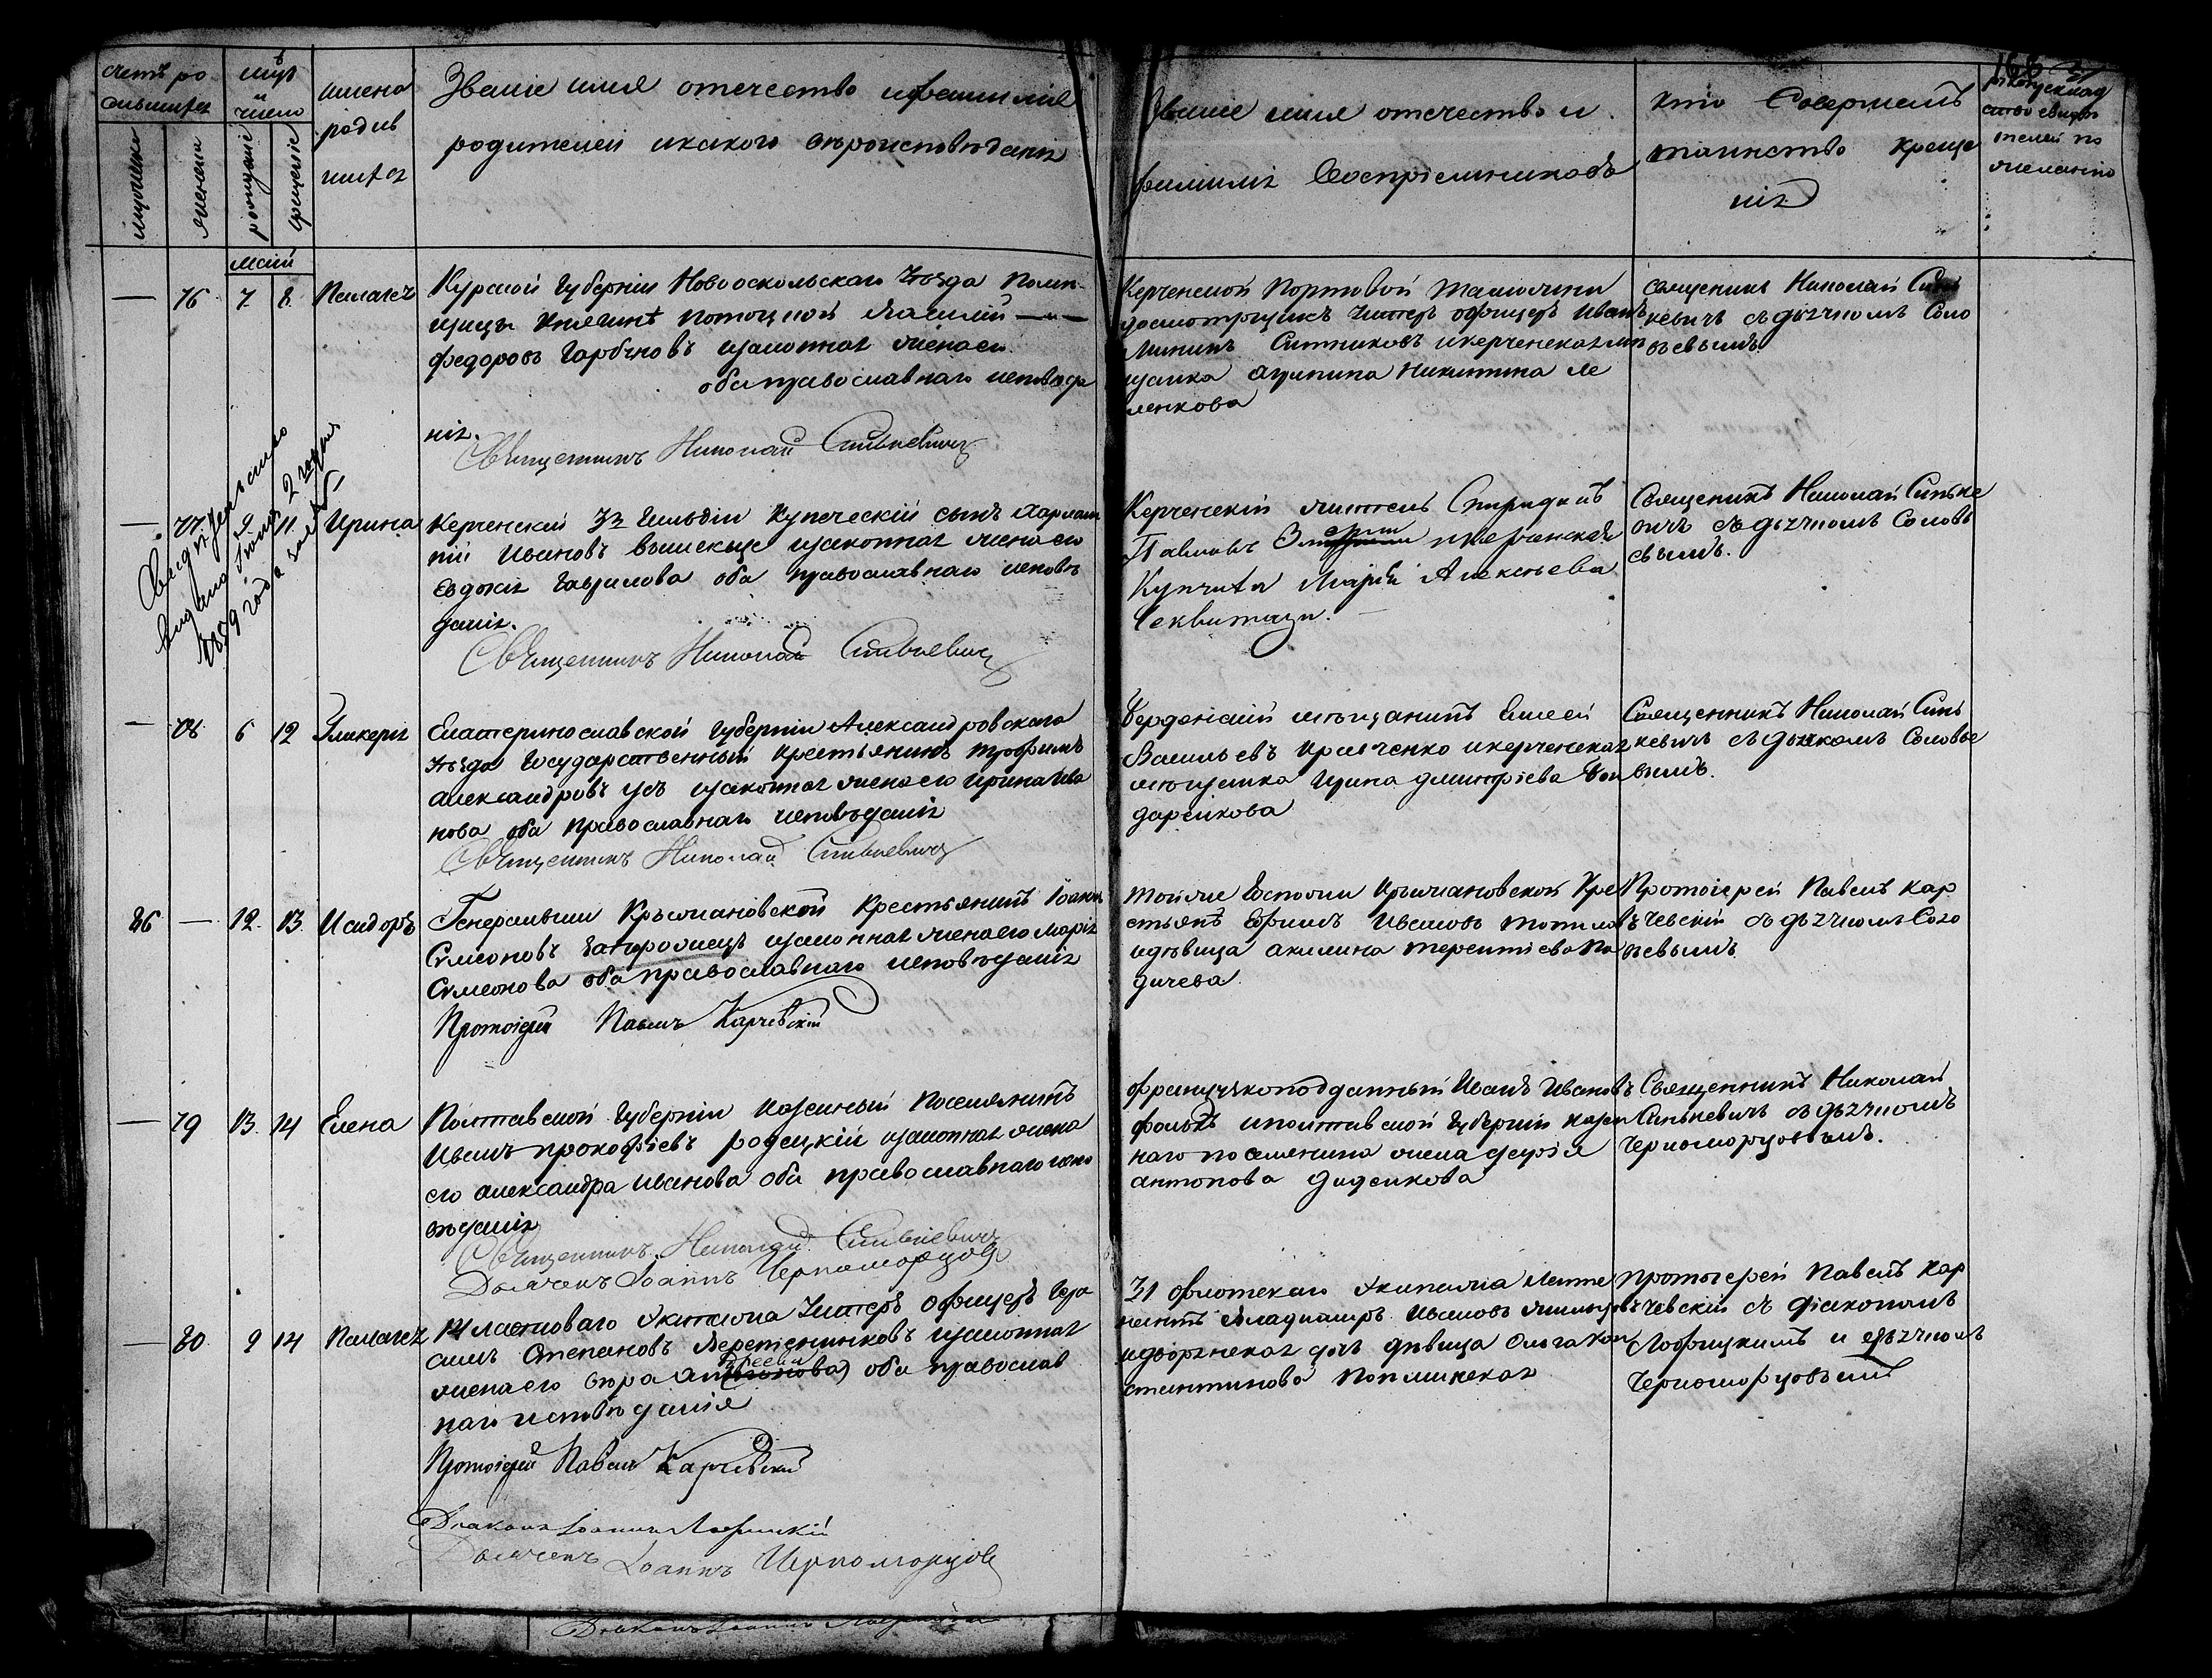 счетъ ро
дившихся
мѣсяцъ
и
число
имена
родив
шихся
Званіе имя отечество и фамилія
родителей и какого вѣроисповѣданія
Званіе имя отечество и
фамилія воспріемниковъ
кто Совершалъ
таинство креще
нія
рукоприклад
ство свидѣ
телей по
желанію
мужеска
женска
рожденіе
крещеніе
маій
— 76 7 8 Пелагея
Курской Губерніи Новооскольскаго Уѣзда Помѣ
щицы Княгинѣ Потоцкой Василій
федоровъ Гарбуновъ изаконная женаего
оба православнаго исповѣда
нія.
Священникъ Николай Синькевичъ
Керченской Портовой Таможни
досмотрщикъ Унтеръ офицеръ Иванъ
Мининъ Ситниковъ икерченская мѣ
щанка агрипина Никитина Ле
ленкова
Священикъ Николай Синь
кевичъ съ дьячкомъ Соло
вьевымъ.
Свидѣтельство
выдано Іюня 2 дня
1859 года за №
— 77 9 11 Ирина
Керченскій 3й Гильдіи Купеческій сынъ Харлам
пій Ивановъ изаконная женаего
Евдокія Гаврилова оба православнаго исповѣ
данія.
Священникъ Николай Синькевичъ
Керченскій житель Спиридонъ
Павловъ икерченская
Купчиха Марія Алексѣева
Священикъ Николай Синьке
вичъ съ дьячкомъ Соловь
евымъ.
— 78 6 12 Гликерія
Екатеринославской Губерніи Александровскаго
Уѣзда Государственный крестьянинъ Трофимъ
александровъ Усъ изаконная женаего Ирина Ива
нова оба православнаго исповѣданія
Священникъ Николай Синькевичъ
Бердянскій мѣщанинъ Елисей
Васильевъ Кравченко икерченская
мѣщанка Ирина дмитріева Бон
даренкова
Священникъ Николай Синь
кевичъ съ дьячкомъ Соловье
вымъ.
86 — 12 13 Исидоръ
Генеральши Крыжановской Крестьянинъ Іоаки
Симеоновъ Загорожнецъ изаконная женаего Марія
Симеонова оба православнаго исповѣданія
Протоіерей Павелъ Карчевскій
той же Госпожи Крыжановской Кре
стьянъ Ефимъ Ивановъ
идѣвица акилина терентіева По
дичева
Протоіерей Павелъ Кар
чевскій съ дьячкомъ Соло
вьевымъ
— 79 13 14 Елена
Полтавской Губерніи казенный Поселянинъ
Иванъ прокофіевъ родецкій изаконная жена
его александра иванова оба православнаго испо
вѣданія
Священникъ Николай Синькевичъ
Дьячекъ Іоаннъ Черноморцовъ
французкоподданный Иванъ Ивановъ
фольтъ иполтавской Губерніи казен
наго поселянина жена
антонова Диденкова
Священникъ Николай
Синькевичъ съ дьячкомъ
Черноморцовымъ.
— 80 9 14 Пелагея
14 ластоваго Экипажа Унтеръ офицеръ Гера
симъ Степановъ Веретенниковъ изаконная
женаего вѣра оба православ
наго исповѣданія
Протоіерей Павелъ Карчевскій
Діаконъ Іоаннъ Лофицкій
Дьячекъ Іоаннъ Черноморцовъ
31 флотскаго Экипажа Лейте
нантъ Владиміръ Ивановъ
идворянская дочь дѣвица Ольга Кон
стантинова
протоіерей Павелъ Кар
чевскій съ діакономъ
Лофицкимъ и дьячкомъ
Черноморцовымъ
Діаконъ Іоаннъ Лофицкій